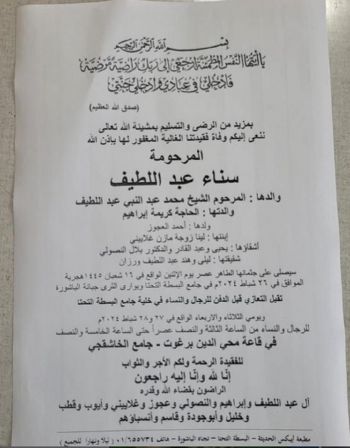 بسم الله الرحمن الرحيم
يا أيتها النفس المطمئنة ارجعي إلى ربك راضية مرضية
فادخلي في عبادي وادخلي جنتي
(صدق الله العظيم)
بمزيد من الرضى والتسليم بمشيئة الله تعالى
ننعى إليكم وفاة فقيدتنا الغالية المغفور لها بإذن الله
المرحومة
سناء عبد اللطيف
والدها : المرحوم الشيخ محمد عبد النبي عبد اللطيف
والدتها : الحاجة كريمة إبراهيم
ولدها : أحمد العجوز
إبنتها : لينا زوجة مازن غلاييني
أشقاؤها : يحيى وعبد القادر والدكتور بلال النصولي
شقيقتها : ليلى وهند عبد اللطيف ورزان
سيصلى على جثمانها الطاهر عصر يوم الإثنين الواقع في ١٦ شعبان ١٤٤٥ هجرية
الموافق في ٢٦ شباط ٢٠٢٤م في جامع البسطة التحتا ويوارى الثرى جبانة الباشورة
تقبل التعازي قبل الدفن للرجال والنساء في خلية جامع البسطة التحتا
ويومي الثلاثاء والاربعاء الواقع في ٢٧ و ٢٨ شباط ٢٠٢٤م
للرجال والنساء من الساعة الثالثة والنصف عصراً حتى الساعة الخامسة والنصف
في قاعة محي الدين برغوت - جامع الخاشقجي
للفقيدة الرحمة ولكم الأجر والثواب
إنّا لله وإنّا إليه راجعون
الراضون بقضاء الله وقدره
آل عبد اللطيف وإبراهيم والنصولي وعجوز وغلاييني وأيوب وقطب
وخليل وأبوجودة وقاسم وأنسباؤهم
مطبعة أيبكس الحديثة - البسطة التحتا - تجاه الباشورة - هاتف ٠١/٦٥٥٧٣٤ ( ليلا ونهارا للجميع )